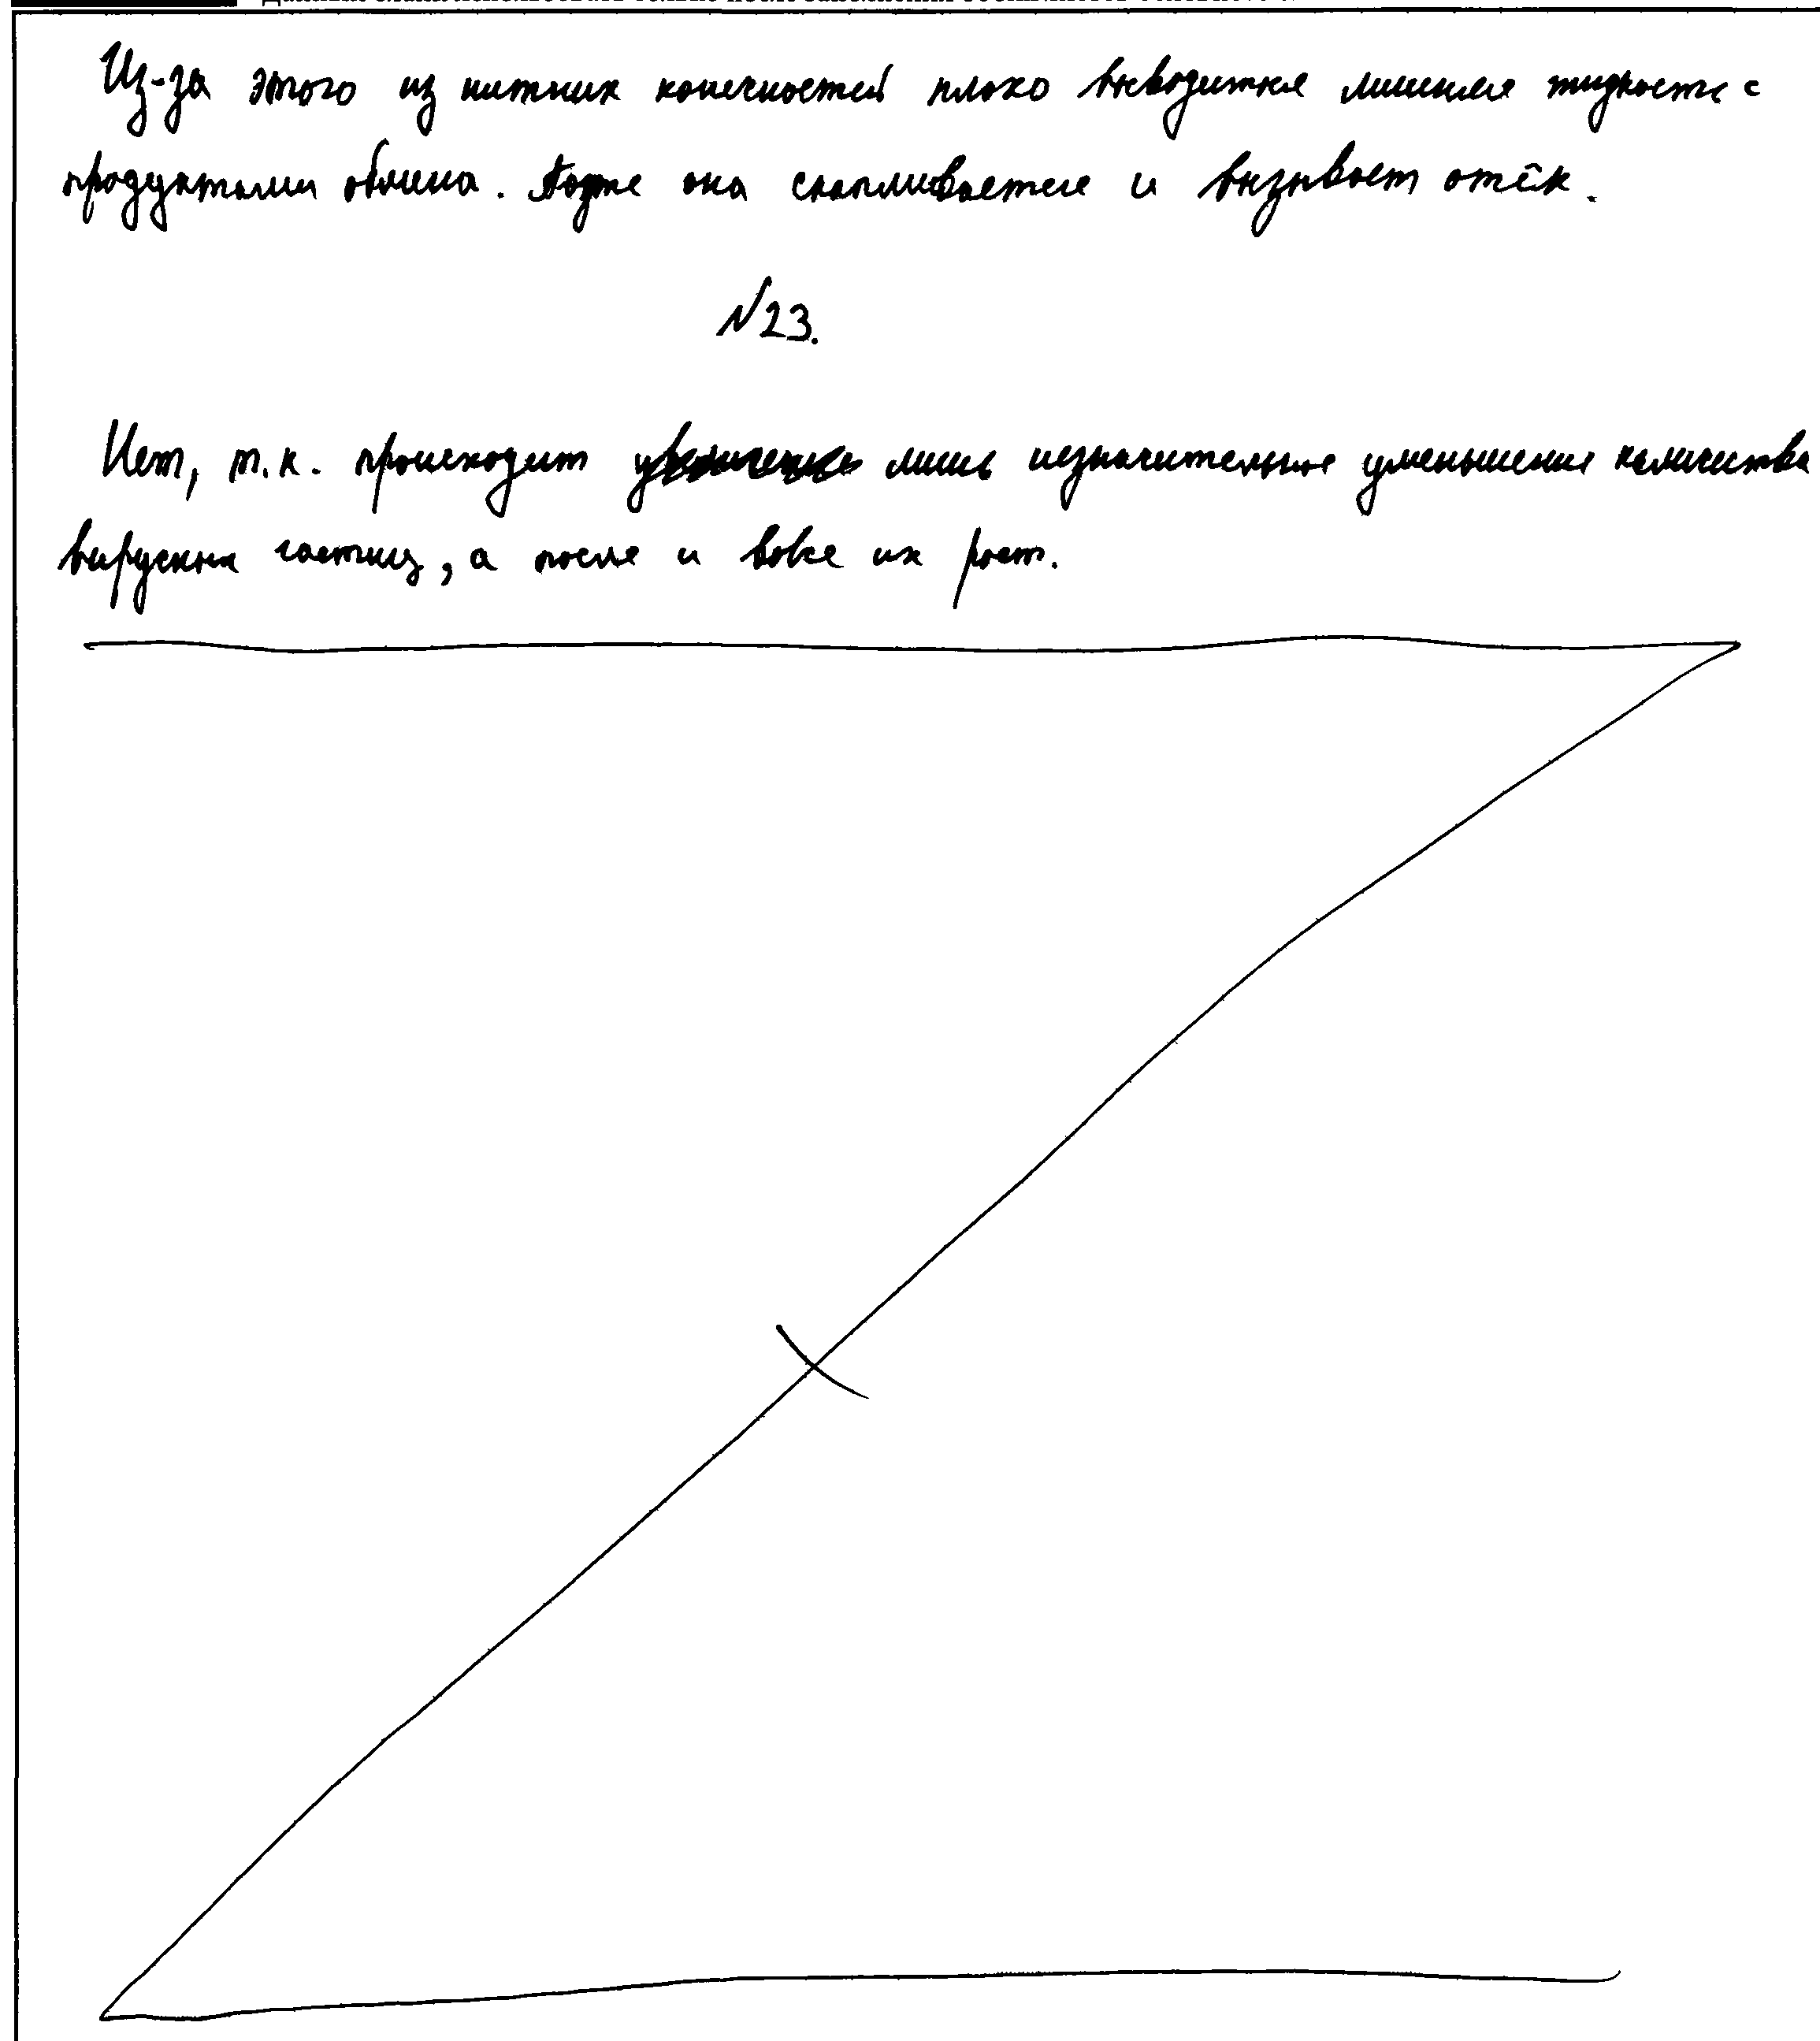 Из-за этого из нижних конечностей плохо выводится лишняя жидкость с
продуктами обмена. Позже она скапливается и вызывает отёк.
№23.
Нет, т.к. происходит лишь незначительное уменьшение количества
вирусных частиц, а после и вовсе их рост.